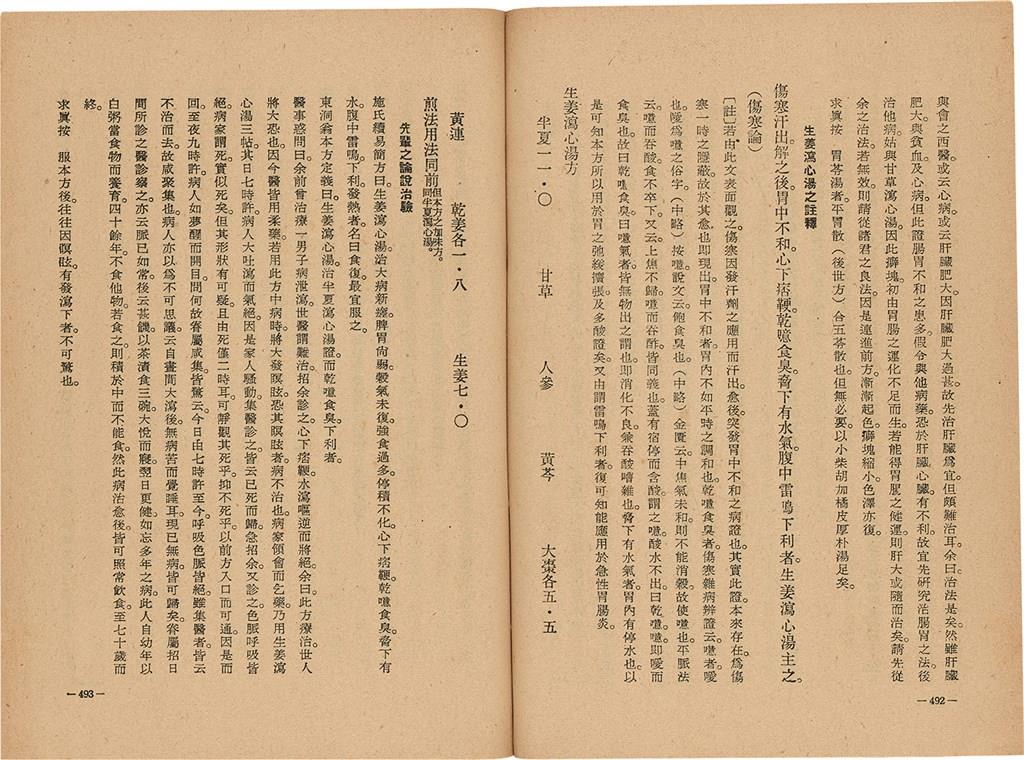 與會之西醫或云心病或云肝臟肥大因肝臟肥大過甚故先治肝臟爲宜但頗難治耳余曰治法是矣然雖肝臟
肥大與貧血及心病但此證腸胃不和之患多假令與他病藥恐於肝臟心臟有不利故宜先研究治腸胃之法後
治他病姑與甘草瀉心湯因此癖塊初由胃腸之運化不足而生若能得胃腸之健運則肝大或隨而治矣請先從
余之治法若無效則請從諸君之良法因是連進前方漸漸起色癖塊縮小色澤亦復
求眞按 胃苓湯者平胃散(後世方)合五苓散也但無必要以小柴胡加橘皮厚朴湯足矣
生姜瀉心湯之註釋
傷寒汗出解之後胃中不和心下痞鞕乾噫食臭脅下有水氣腹中雷鳴下利者生姜瀉心湯主之
(傷寒論)
〔註〕若由此文表面觀之傷寒因發汗劑之應用而汗出愈後突發胃中不和之病證也其實此證本來存在爲傷
寒一時之隱蔽故於其愈也即現出胃中不和者胃內不如平時之調和也乾噫食臭者傷寒雜病辨證云噫者噯
也噯爲噫之俗字(中略)按噫說文云飽食臭也(中略)金匱云中焦氣未和則不能消穀故使噫也平脈法
云噫而吞酸食不卒下又云上焦不歸噫而吞酢皆同義也蓋有宿停而含酸謂之噫酸水不出曰乾噫噫即噯而
食臭也故曰乾噫食臭曰噫氣者皆無物出之謂也即消化不良兼吞酸嘈雜也脅下有水氣者胃內有停水也以
是可知本方所以用於胃之弛緩擴張及多酸證矣又由謂雷鳴下利者復可知能應用於急性胃腸炎
生姜瀉心湯方
半夏一一·〇 甘草 人參 黃芩 大棗各五·五
—492—
黃連 乾姜各一·八 生姜七·〇
煎法用法同前但本方之加味方同半夏瀉心湯
先輩之論說治驗
施氏續易簡方曰生姜瀉心湯治大病新瘥脾胃尙弱穀氣未復強食過多停積不化心下痞鞕乾噫食臭脅下有
水腹中雷鳴下利發熱者名曰食復最宜服之
東洞翁本方定義曰生姜瀉心湯治半夏瀉心湯證而乾噫食臭下利者
醫事惑問曰余前曾治療一男子病泄瀉世醫謂難治招余診之心下痞鞕水瀉嘔逆而將絕余曰此方療治世人
將大恐也因今醫皆用柔藥若用此方中病時將大發瞑眩恐其瞑眩者病不治也病家領會而乞藥乃用生姜瀉
心湯三帖其日七時許病人大吐瀉而氣絕因是家人騷動集醫診之皆云已死而歸急招余余又診之色脈呼吸皆
絕病家謂死實似死矣但其形狀有可疑且由死僅二時耳可靜觀其死乎抑不死乎以前方入口而可通因是而
回至夜九時許病人如夢醒而開目問何故眷屬咸集皆驚云今日由七時許至今呼吸色脈皆絕雖集醫者皆云
不治而去故咸聚集也病人亦以爲不可思議云自晝間大瀉後無病苦而覺睡耳現已無病皆可歸矣眷屬招日
間所診之醫診察之亦云脈已如常後云甚饑以茶漬食三碗大悅而寢翌日更健如忘多年之病此人自幼年以
白粥當食物而養育四十餘年不食他物若食之則積於中而不能食然此病治愈後皆可照常飲食至七十歲而
終
求眞按 服本方後往往因瞑眩有發瀉下者不可驚也
—493—